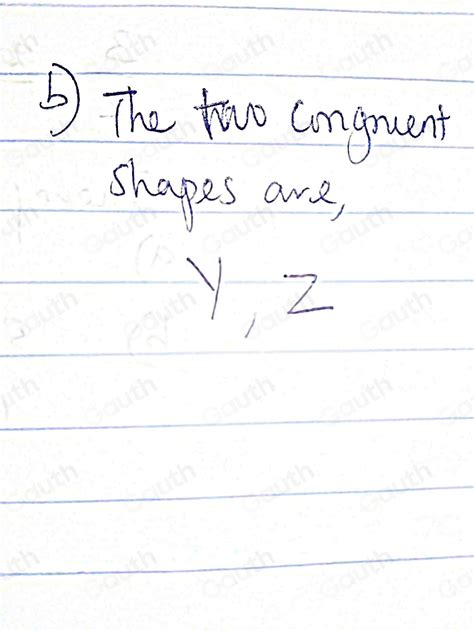 b) The two congruent
shapes are,
Y, Z